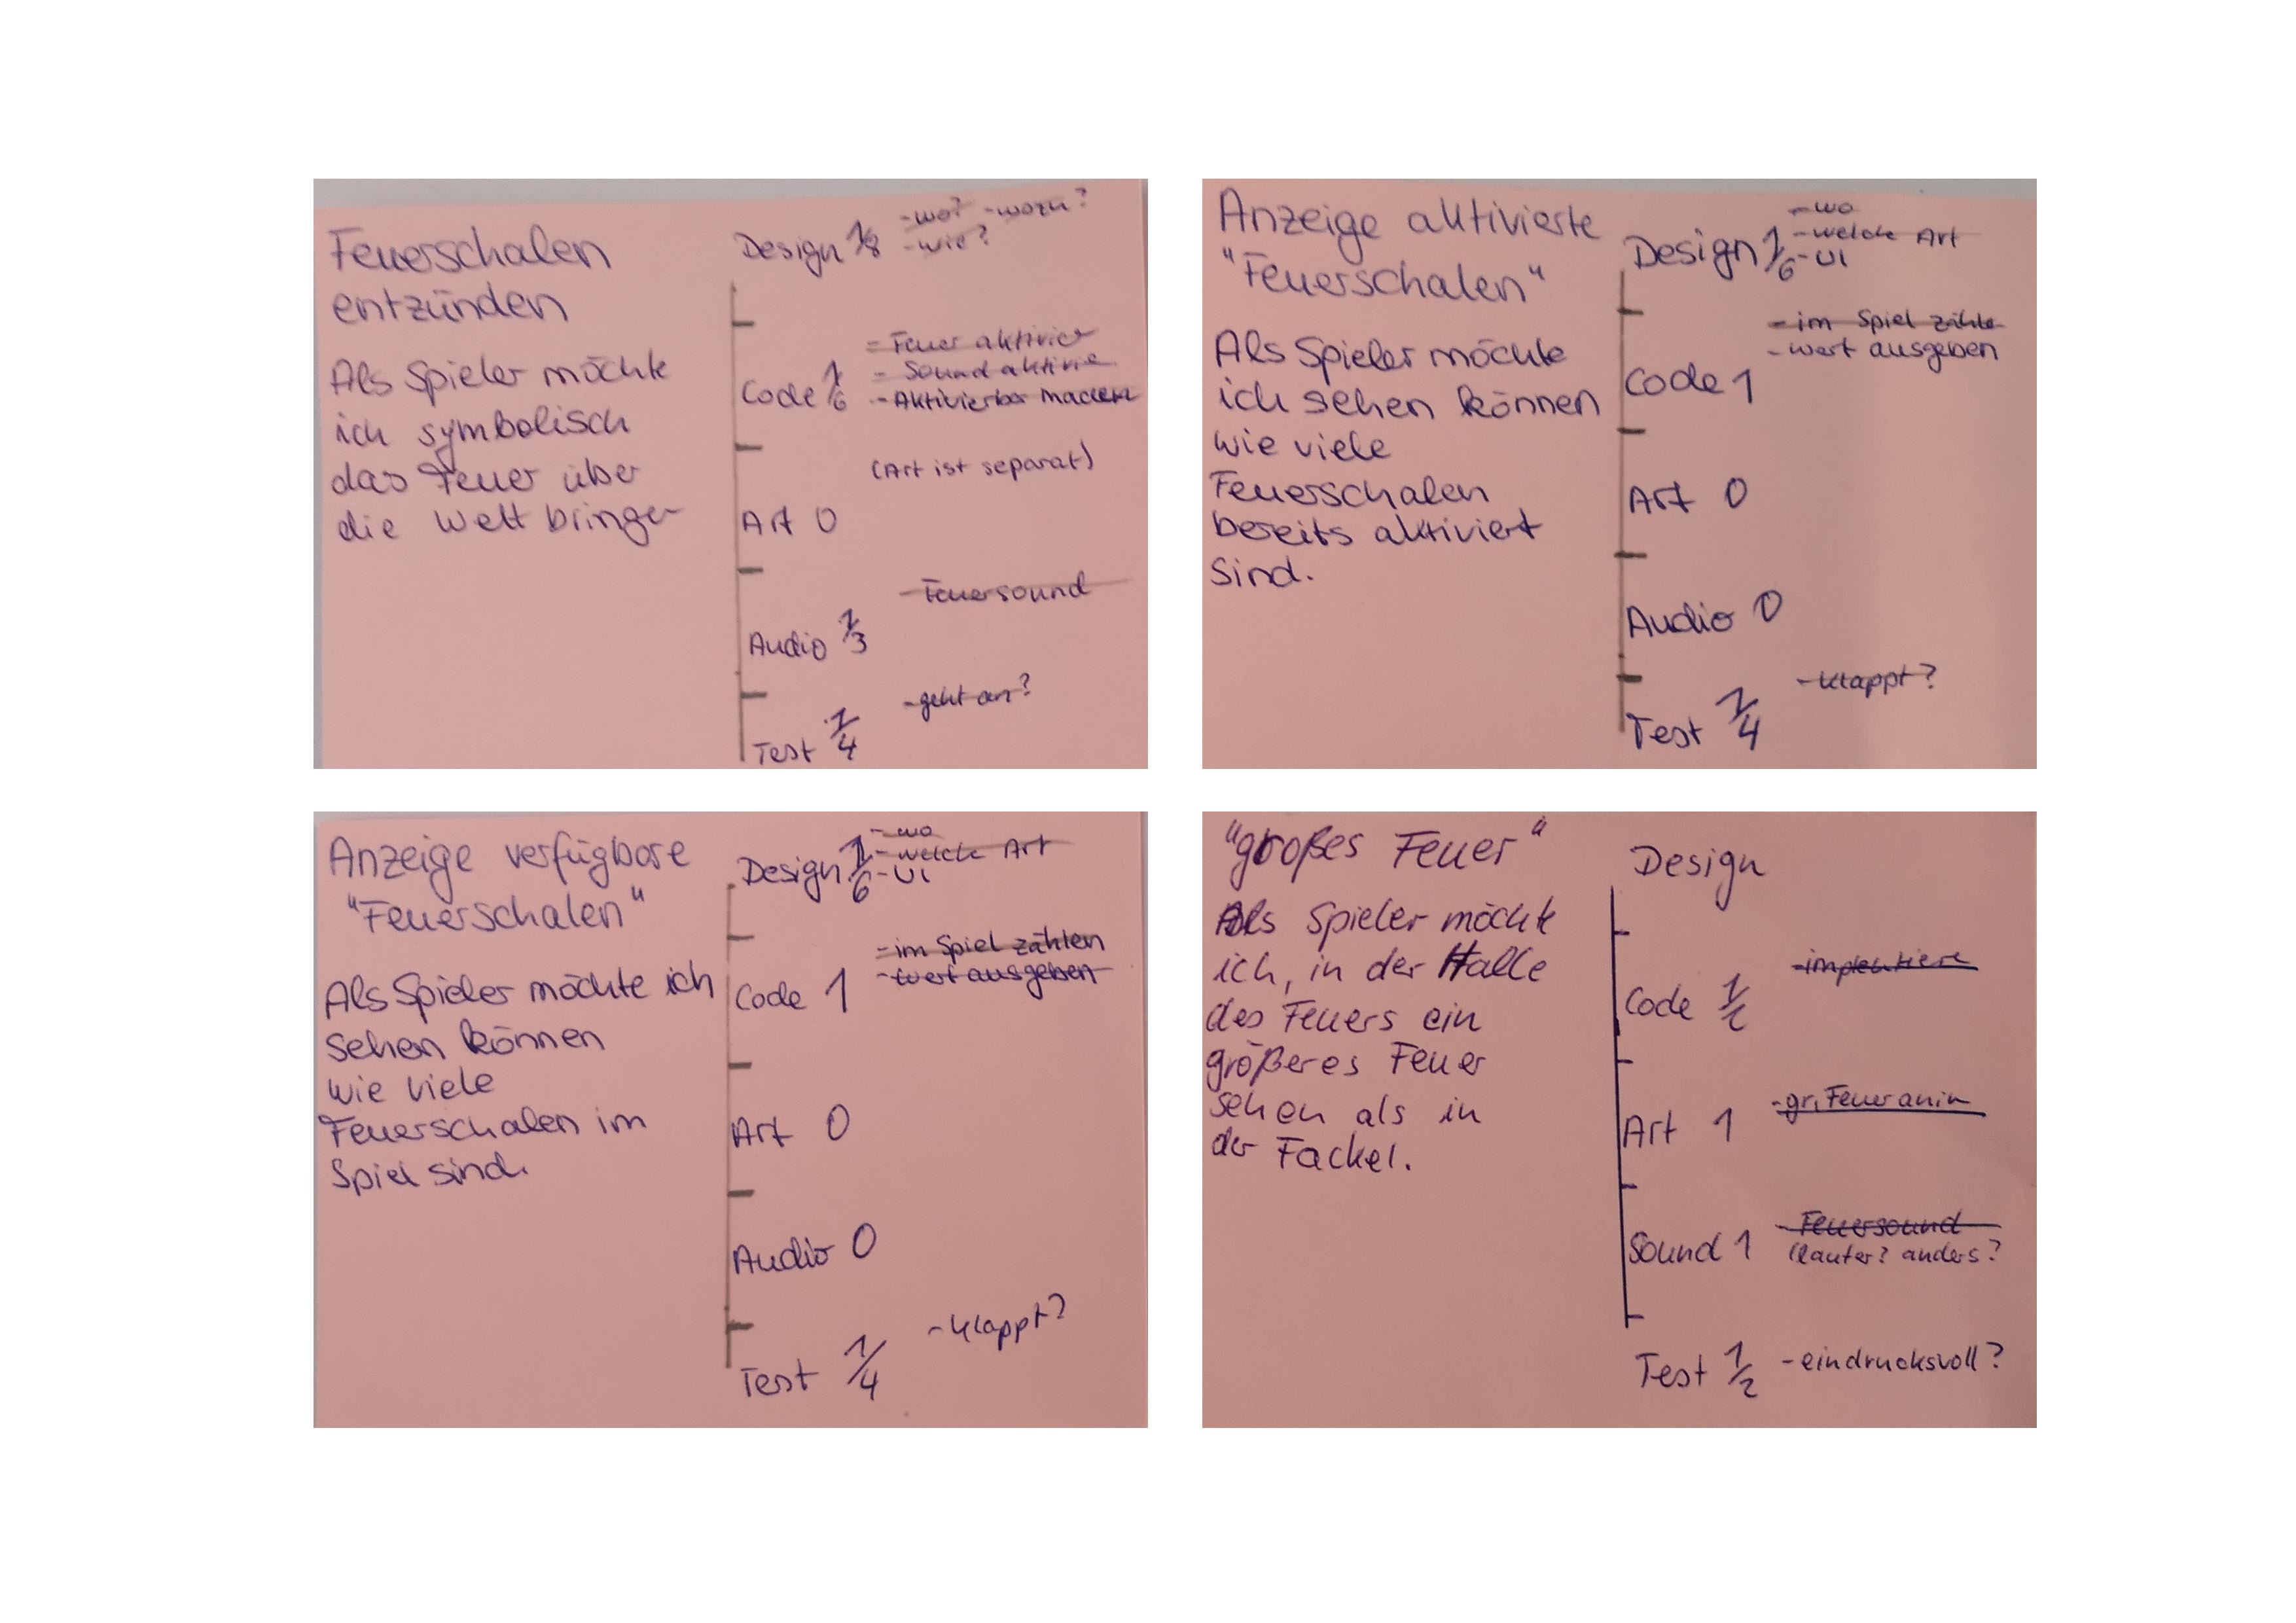 Feuerschalen
entzünden
Als Spieler möchte
ich symbolisch
das Feuer über
die Welt bringen
Design 1/8
-wo? -wozu?
-wie?
Code 1/6
- Feuer aktivier
- Sound aktivie
- Aktivierbar machen
(Art ist separat)
Art 0
Audio 1/3
- Feuersound
Test 1/4
-geht an?
Anzeige aktivierte
"Feuerschalen"
Als Spieler möchte
ich sehen können
wie viele
Feuerschalen
bereits aktiviert
sind.
Design 1/6
-wo
-welche Art
-UI
Code 1
-im Spiel zähle
-wert ausgeben
Art 0
Audio 0
Test 1/4
-klappt?
Anzeige verfügbare
"Feuerschalen"
Als Spieler möchte ich
sehen können
wie viele
Feuerschalen im
Spiel sind.
Design 1/6
-wo
-welche Art
-UI
Code 1
-im Spiel zählen
-wert ausgeben
Art 0
Audio 0
Test 1/4
-klappt?
"großes Feuer"
Als Spieler möchte
ich, in der Halle
des Feuers ein
größeres Feuer
sehen als in
der Fackel.
Design
Code 1/2
Art 1
-gr. Feuer anim
Sound 1
- Feuersound
(lauter? anders?
Test 1/2
-eindrucksvoll?